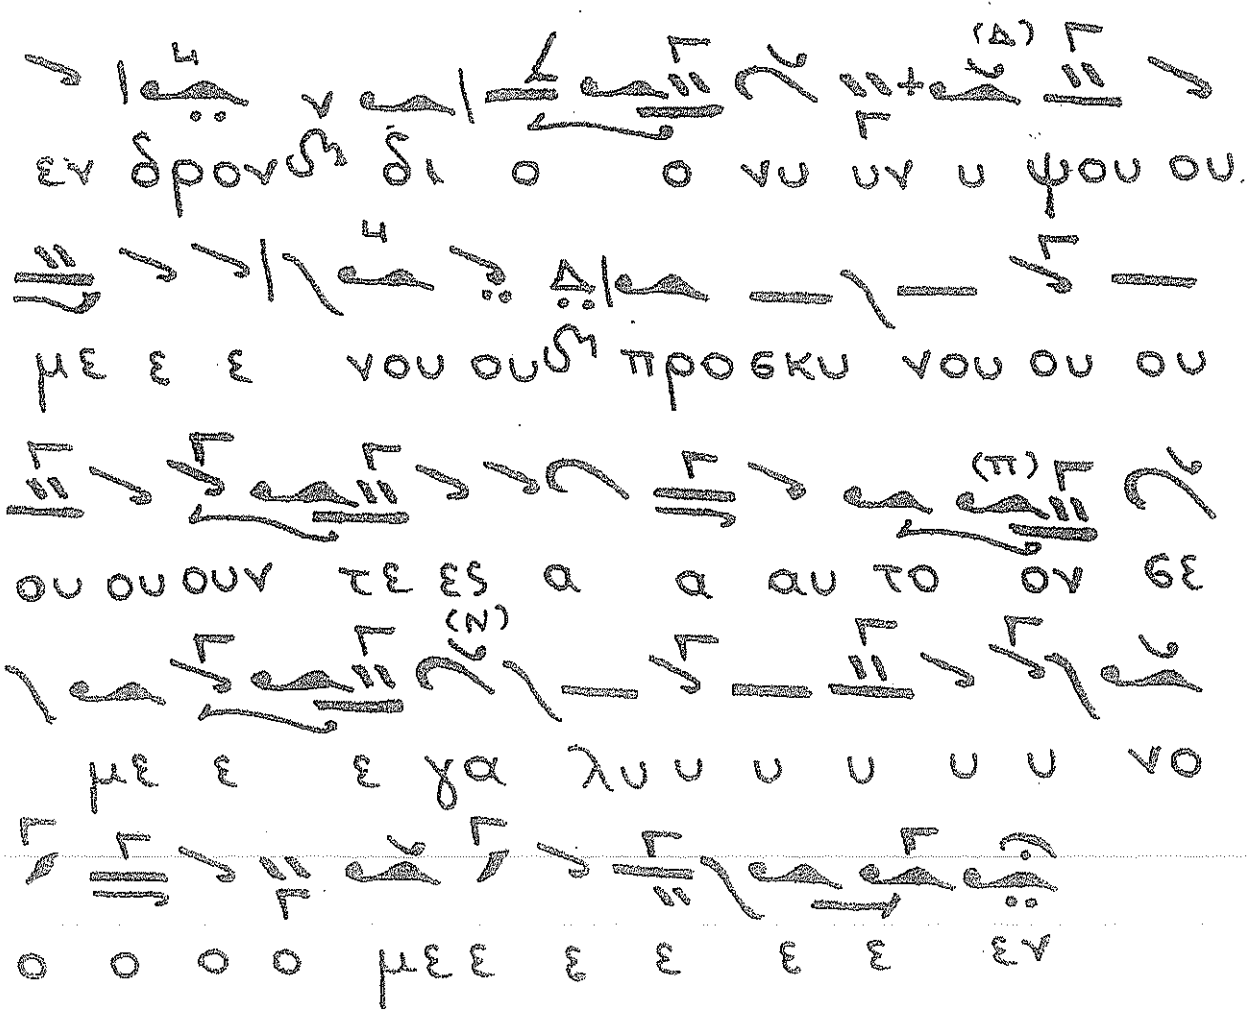 (Δ)
εν δρον δι ο ο νυ υν υ ψου ου
Δ
με ε ε νου ου προ σκυ νου ου ου
(π)
ου ου ουν τε ες α α αυ το ον σε
(Ν)
με ε ε γα λυ υ υ υ υ υ νο
ο ο ο ο με ε ε ε ε ε ε εν